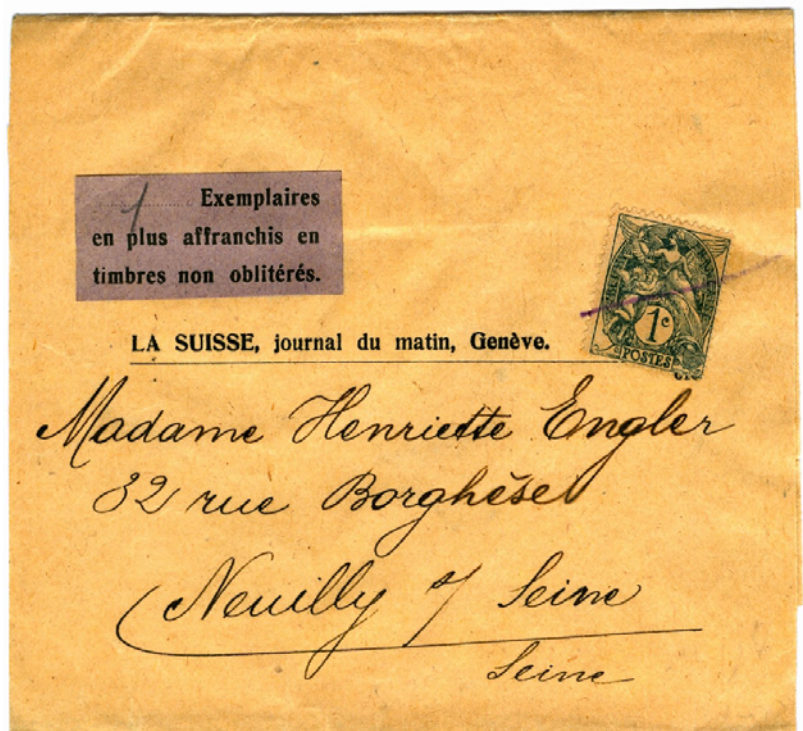 1 Exemplaires
en plus affranchis en
timbres non oblitérés.
1c
POSTES
LA SUISSE, journal du matin, Genève.
Madame Henriette Engler
32 rue Borghèse
Neuilly s/ Seine
Seine